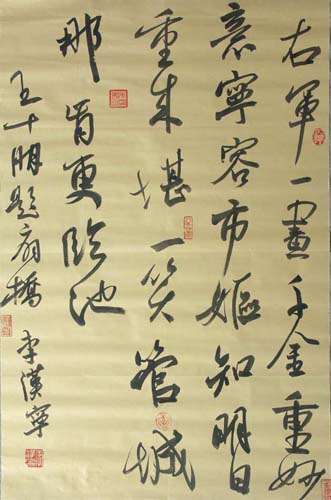 右軍一畫千金重妙
意寧容市嫗知明日
重来堪一笑管城
那肯更臨池
王十朋題扇橋 李漢寧